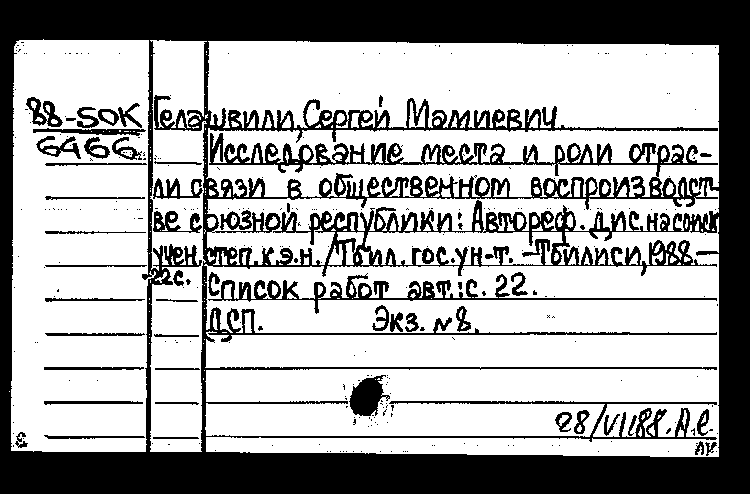 88-50К Гелашвили, Сергей Мамиевич.
6466 Исследование места и роли отрас-
ли связи в общественном воспроизводст-
ве союзной республики: Автореф. дис. на соиск
учен. степ. к.э.н. / Тбил. гос. ун-т. - Тбилиси, 1988. -
-22с. Список работ авт.: с. 22.
ДСП. Экз. №8.
28/VII88. А.С.